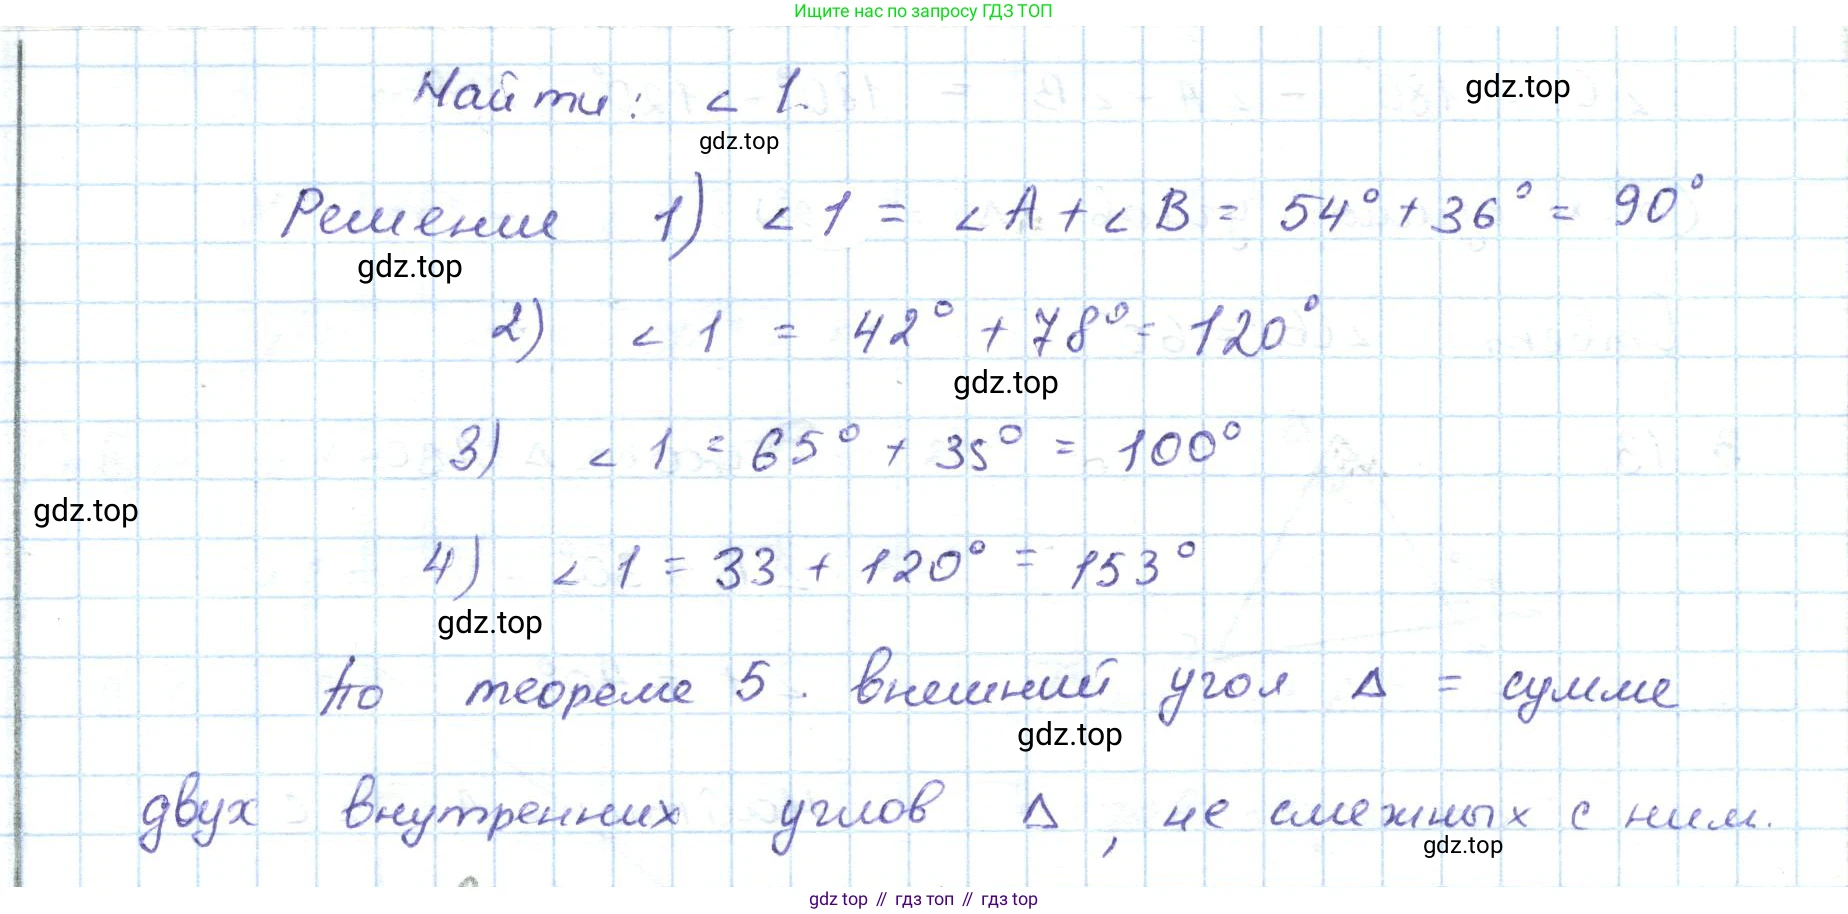 Ищите нас по запросу ГДЗ ТОП
Найти: ∠ 1.
gdz.top
gdz.top
Решение 1) ∠ 1 = ∠ A + ∠ B = 54° + 36° = 90°
gdz.top
2) ∠ 1 = 42° + 78° = 120°
gdz.top
3) ∠ 1 = 65° + 35° = 100°
gdz.top
4) ∠ 1 = 33 + 120° = 153°
gdz.top
По теореме 5. внешний угол Δ = сумме
gdz.top
двух внутренних углов Δ, не смежных с ним.
gdz.top
gdz top // гдз топ // гдз top